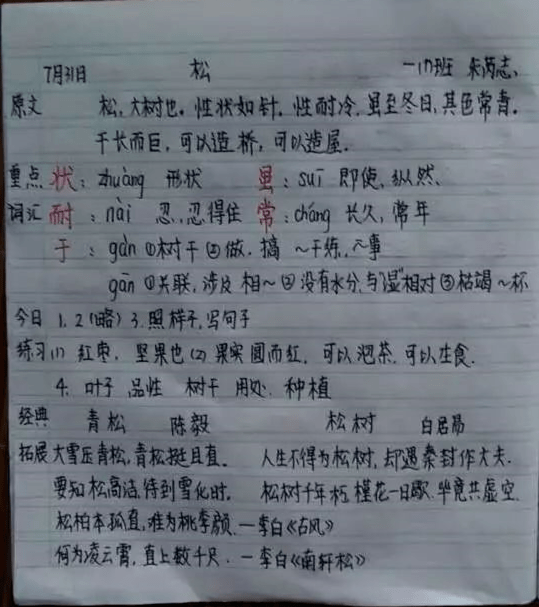 7月31日 松 一(7)班 朱芮志
原文 松,大树也。性状如针,性耐冷,虽至冬日,其色常青。
干长而巨,可以造桥,可以造屋。
重点 状:zhuàng 形状 虽:suī 即使,纵然、
词汇 耐:nài 忍,忍得住 常:cháng 长久,常年
干:gàn ①树干 ②做,搞 ~干练,~事
gān ①关联,涉及 相~ ②没有水分,与"湿"相对 ③枯竭 ~杯
今日 1. 2 (略) 3. 照样子,写句子
练习 (1) 红枣,坚果也 (2) 果实圆而红,可以泡茶,可以生食.
4. 叶子 品性 树干 用处 种植
经典 青松 陈毅 松树 白居易
拓展 大雪压青松,青松挺且直。 人生不得为松树,却遇秦封作大夫.
要知松高洁,待到雪化时. 松树千年朽,槿花一日歇.毕竟共虚空.
松柏本孤直,难为桃李颜.—李白《古风》
何为凌云霄,直上数千尺.—李白《南轩松》